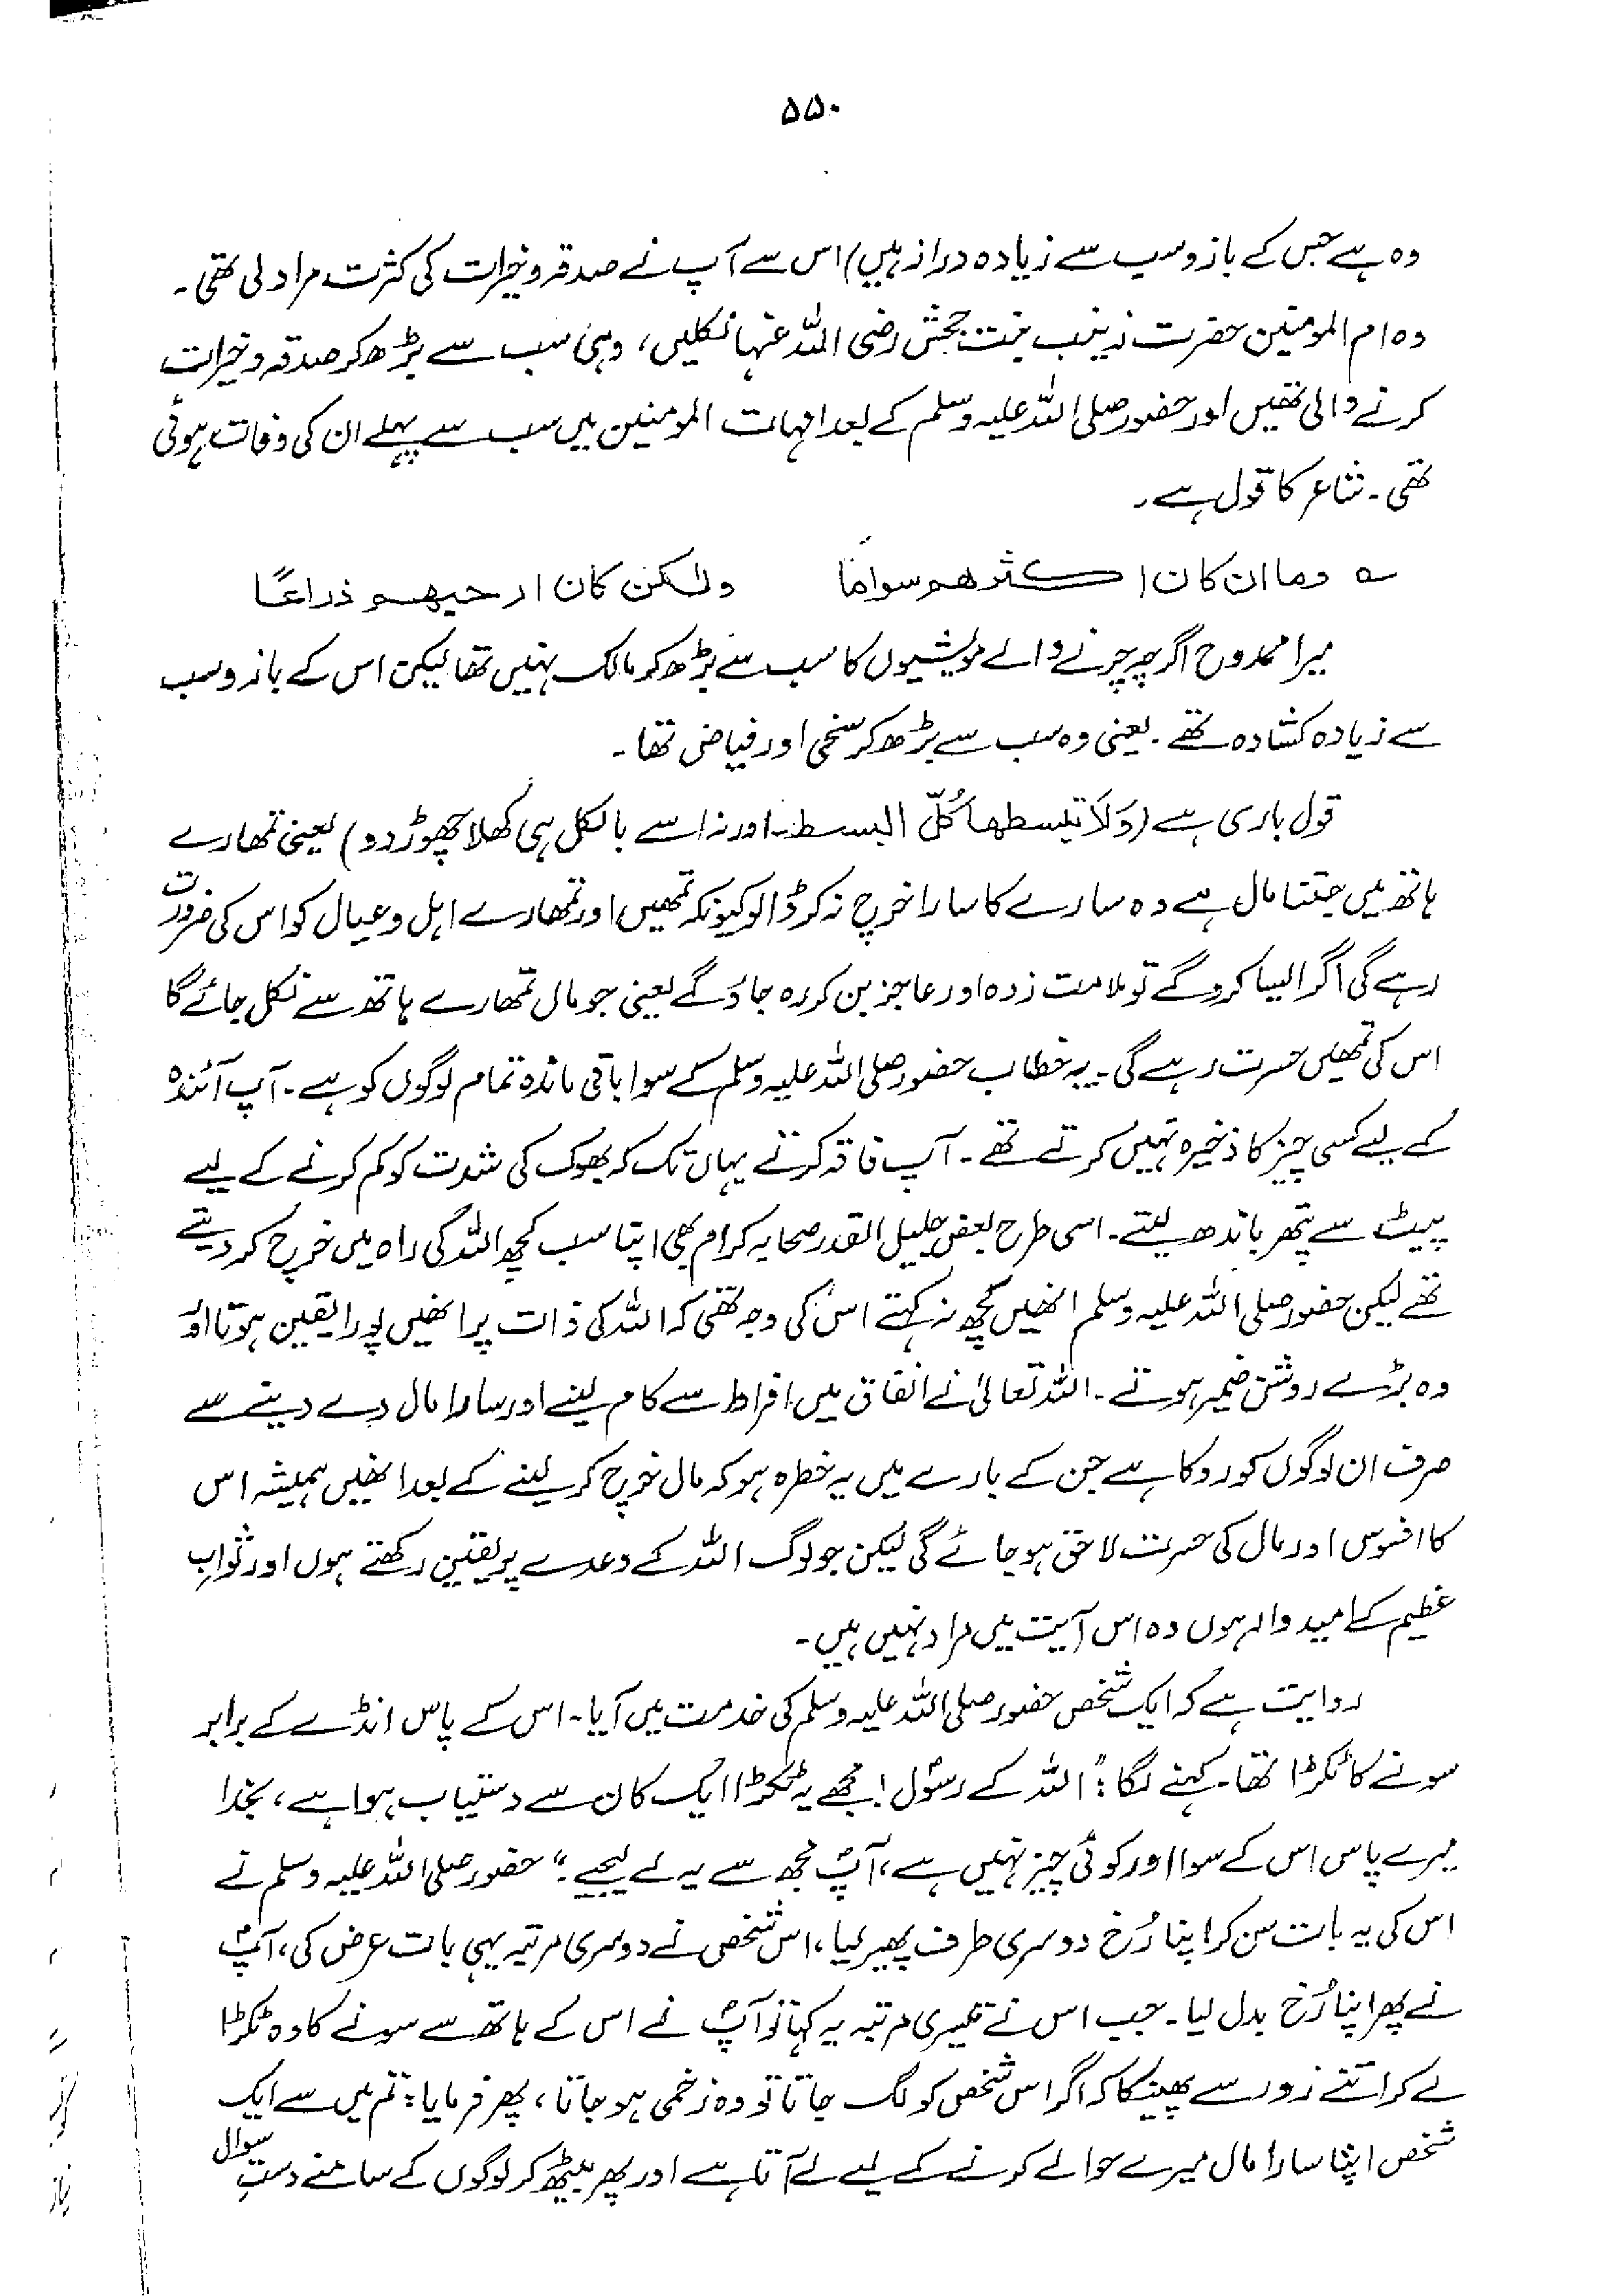 ۵۵۰
وہ ہے جس کے بازو سب سے زیادہ دراز ہیں) اس سے آپ نے صدقہ و خیرات کی کثرت مراد لی تھی۔
وہ ام المومنین حضرت زینب بنت جحش رضی اللہ عنہا نکلیں، وہی سب سے بڑھ کر صدقہ و خیرات
کرنے والی تھیں اور حضور صلی اللہ علیہ وسلم کے بعد امہات المومنین میں سب سے پہلے ان کی وفات ہوئی
تھی۔ شاعر کا قول ہے۔
؎ وما ان كان اكثرهم سواما ولكن كان ارحبهم ذراعًا
میرا ممدوح اگرچہ چرنے والے مویشیوں کا سب سے بڑھ کر مالک نہیں تھا لیکن اس کے بازو سب
سے زیادہ کشادہ تھے۔ یعنی وہ سب سے بڑھ کر سخی اور فیاض تھا۔
قول باری ہے (وَلَا تبسطها كُلّ البسط۔ اور نہ اسے بالکل ہی کھلا چھوڑ دو) یعنی تمھارے
ہاتھ میں جتنا مال ہے وہ سارے کا سارا خرچ نہ کر ڈالو کیونکہ تمھیں اور تمھارے اہل و عیال کو اس کی ضرورت
رہے گی اگر ایسا کرو گے تو ملامت زدہ اور عاجز بن کر رہ جاؤ گے یعنی جو مال تمھارے ہاتھ سے نکل جائے گا
اس کی تمھیں حسرت رہے گی۔ یہ خطاب حضور صلی اللہ علیہ وسلم کے سوا باقی ماندہ تمام لوگوں کو ہے۔ آپ آئندہ
کے لیے کسی چیز کا ذخیرہ نہیں کرتے تھے۔ آپ فاقہ کرتے یہاں تک کہ بھوک کی شدت کو کم کرنے کے لیے
پیٹ سے پتھر باندھ لیتے۔ اسی طرح بعض جلیل القدر صحابہ کرام بھی اپنا سب کچھ اللہ کی راہ میں خرچ کر دیتے
تھے لیکن حضور صلی اللہ علیہ وسلم انھیں کچھ نہ کہتے اس کی وجہ تھی کہ اللہ کی ذات پر انھیں پورا یقین ہوتا اور
وہ بڑے روشن ضمیر ہوتے۔ اللہ تعالیٰ نے انفاق میں افراط سے کام لینے اور سارا مال دے دینے سے
صرف ان لوگوں کو روکا ہے جن کے بارے میں یہ خطرہ ہو کہ مال خرچ کر لینے کے بعد انھیں ہمیشہ اس
کا افسوس اور مال کی حسرت لاحق ہو جائے گی لیکن جو لوگ اللہ کے وعدے پر یقین رکھتے ہوں اور ثوابِ
عظیم کے امیدوار ہوں وہ اس آیت میں مراد نہیں ہیں۔
روایت ہے کہ ایک شخص حضور صلی اللہ علیہ وسلم کی خدمت میں آیا۔ اس کے پاس انڈے کے برابر
سونے کا ٹکڑا تھا۔ کہنے لگا: "اللہ کے رسول! مجھے یہ ٹکڑا ایک کان سے دستیاب ہوا ہے، بخدا
میرے پاس اس کے سوا اور کوئی چیز نہیں ہے، آپؐ مجھ سے یہ لے لیجیے" حضور صلی اللہ علیہ وسلم نے
اس کی یہ بات سن کر اپنا رُخ دوسری طرف پھیر لیا، اس شخص نے دوسری مرتبہ یہی بات عرض کی، آپؐ
نے پھر اپنا رُخ بدل لیا۔ جب اس نے تیسری مرتبہ یہ کہا تو آپؐ نے اس کے ہاتھ سے سونے کا وہ ٹکڑا
لے کر اتنے زور سے پھینکا کہ اگر اس شخص کو لگ جاتا تو وہ زخمی ہو جاتا، پھر فرمایا: تم میں سے ایک
شخص اپنا سارا مال میرے حوالے کرنے کے لیے لے آتا ہے اور پھر بیٹھ کر لوگوں کے سامنے دستِ سوال